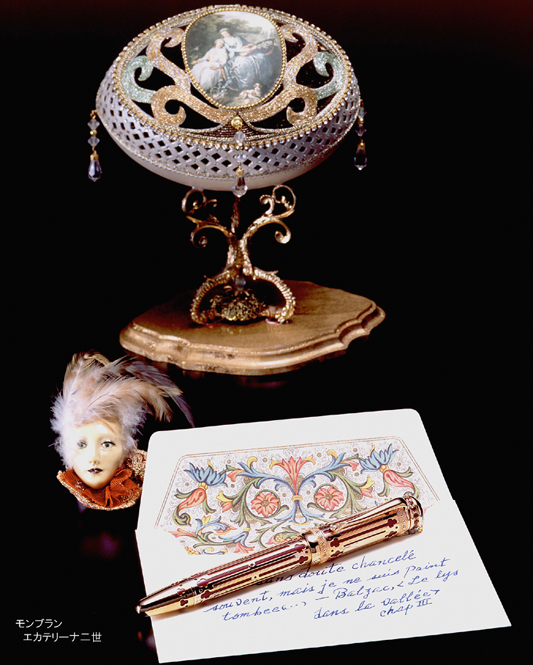 sans doute chancelé
souvent, mais je ne suis point
tombée... — Balzac, « Le lys
dans la vallée »
chap III
モンブラン
エカテリーナ二世